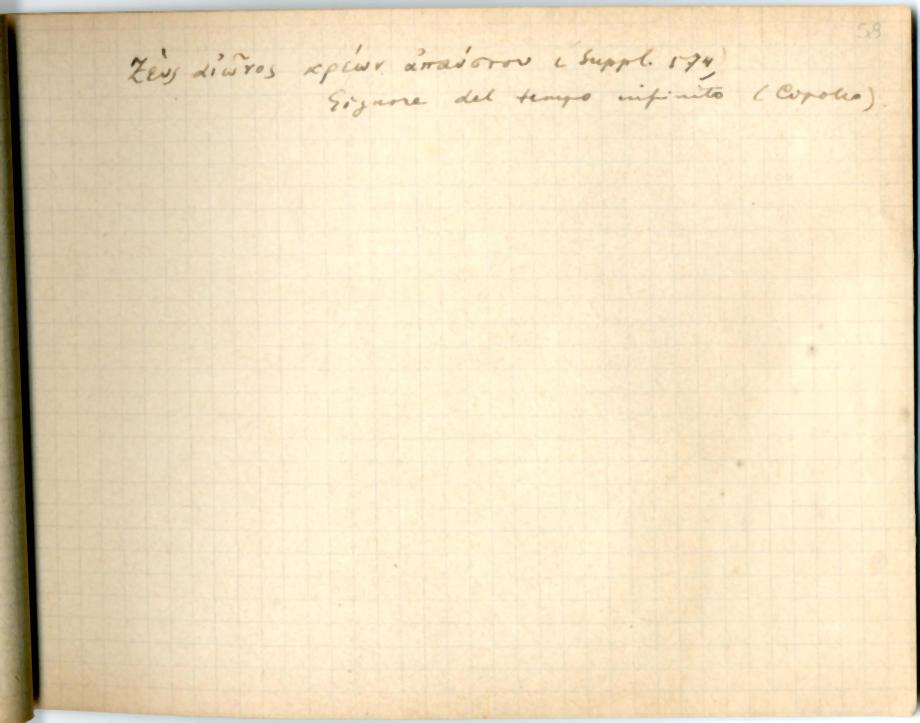 58
Ζεὺς αἰῶνος κρέων ἀπαύστου (Suppl. 574)
Signore del tempo infinito (Coppola)